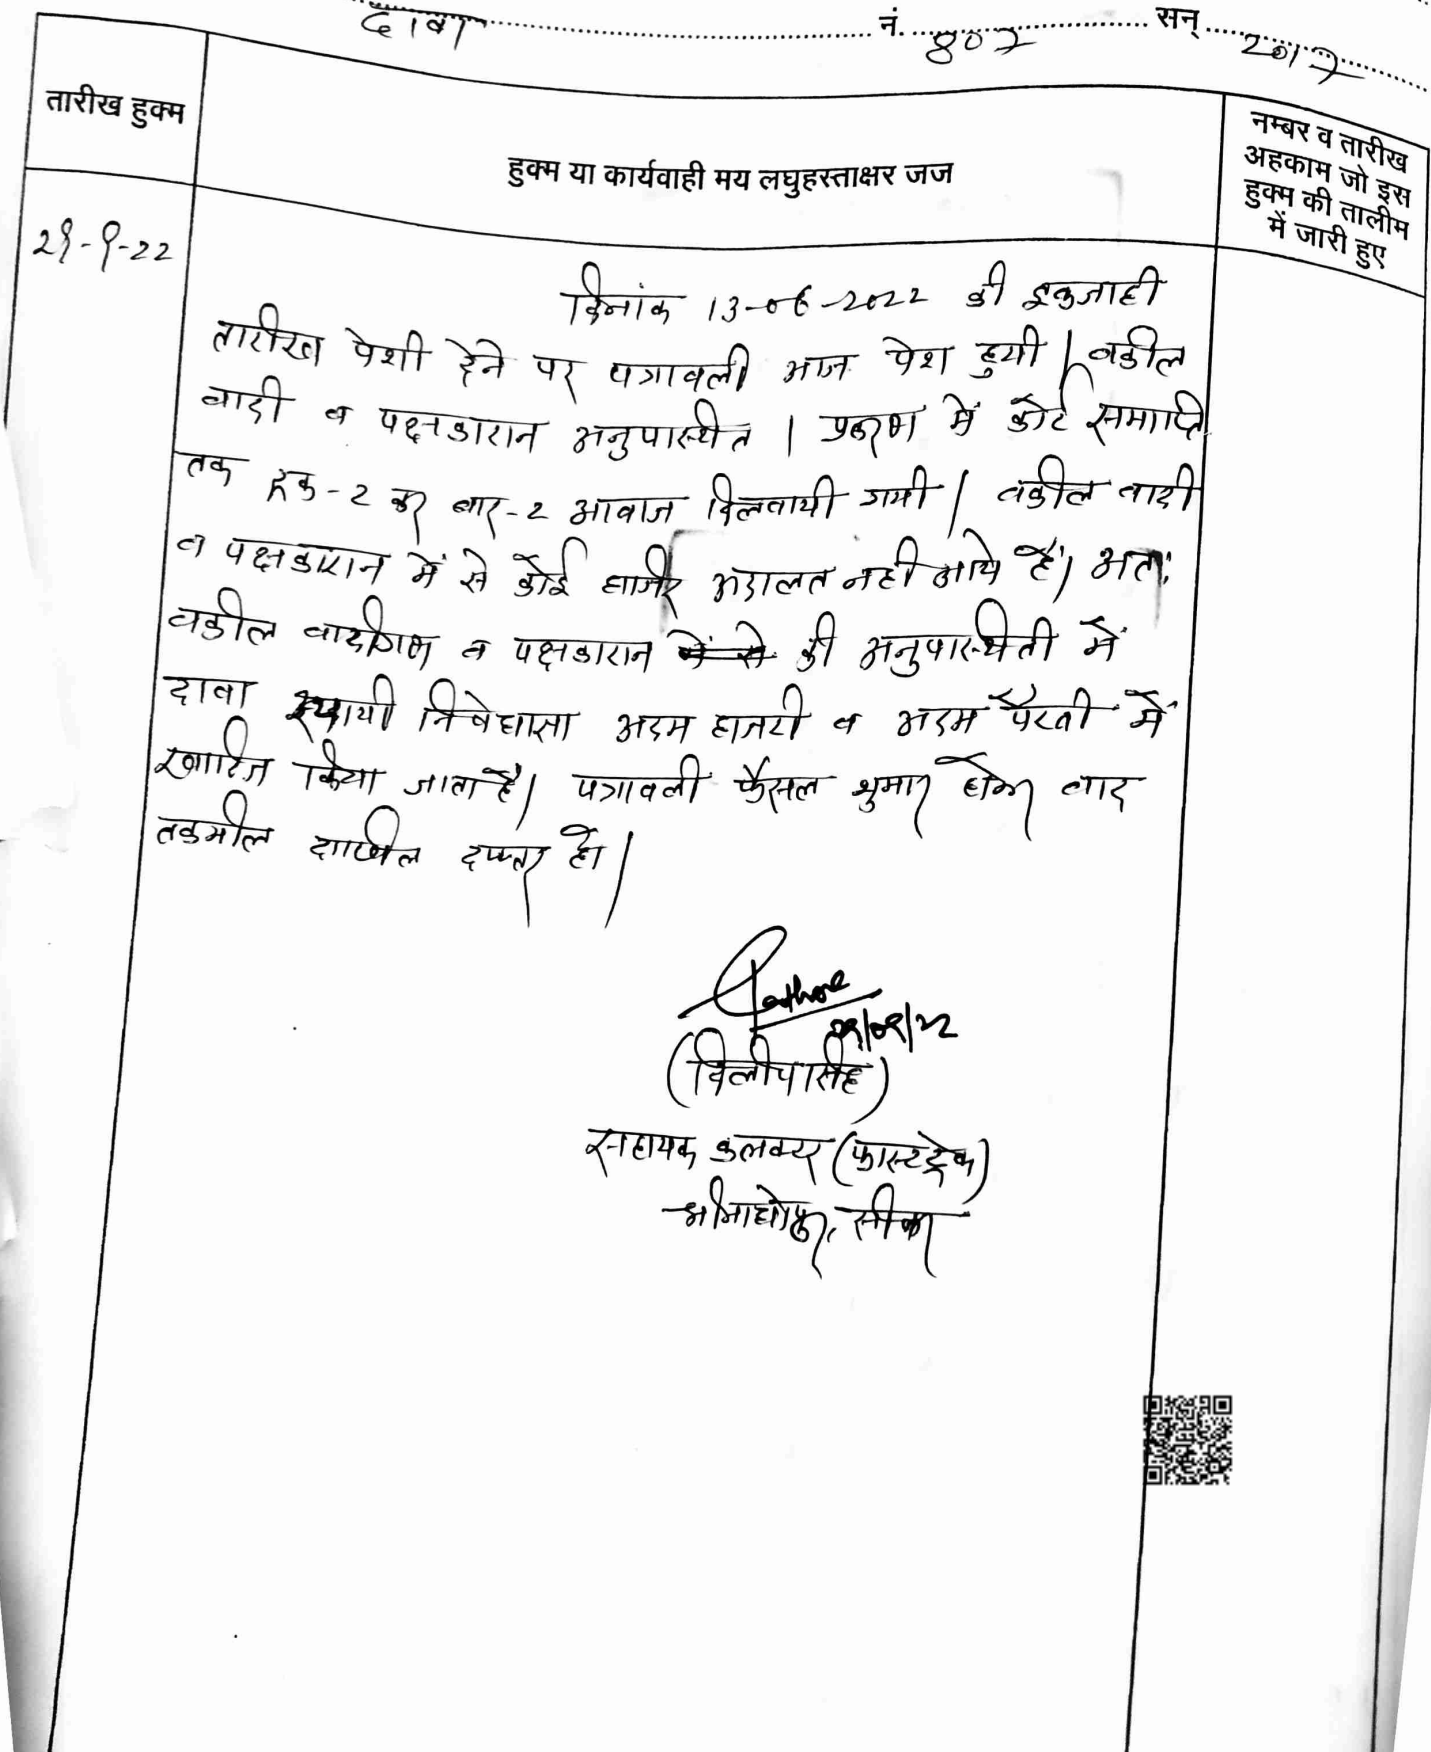 दावा नं. 807 सन् 2017
तारीख हुक्म
हुक्म या कार्यवाही मय लघुहस्ताक्षर जज
नम्बर व तारीख
अहकाम जो इस
हुक्म की तालीम
में जारी हुए
29-9-22
दिनांक 13-06-2022 की इकजाही
तारीख पेशी देने पर पत्रावली आज पेश हुयी। वकील
वादी व पक्षकारान अनुपस्थित। प्रकरण में कोर्ट समाप्ति
तक रूक-2 कर बार-2 आवाज दिलवायी गयी। वकील वादी
व पक्षकारान में से कोई हाजिर अदालत नही आये हैं। अतः
वकील वादीगण व पक्षकारान में से की अनुपस्थिती में
दावा स्थायी निषेधाज्ञा अदम हाजरी व अदम पैरवी में
खारिज किया जाता है। पत्रावली फैसल शुमार होकर बाद
तकमील दाखिल दफ्तर हो।
Rathore
29/09/22
(दिलीपसिंह)
सहायक कलक्टर (फास्टट्रेक)
श्रीमाधोपुर, सीकर